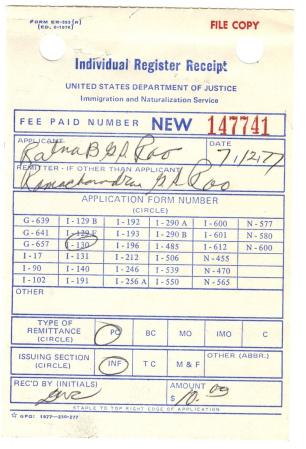 FORM ER-393 (R) FILE COPY
(ED. 6-1974)
Individual Register Receipt
UNITED STATES DEPARTMENT OF JUSTICE
Immigration and Naturalization Service
FEE PAID NUMBER NEW 147741
APPLICANT DATE
Ratna B G. A. Rao 7/12/77
REMITTER - IF OTHER THAN APPLICANT
Ramachandra G. A. Rao
APPLICATION FORM NUMBER
(CIRCLE)
G-639 I-129 B I-192 I-290 A I-600 N-577
G-641 I-129 F I-193 I-290 B I-601 N-580
G-657 I-130 I-196 I-485 I-612 N-600
I-17 I-131 I-212 I-506 N-455
I-90 I-140 I-246 I-539 N-470
I-102 I-191 I-256 A I-550 N-565
OTHER
TYPE OF REMITTANCE (CIRCLE) PC BC MO IMO C
ISSUING SECTION (CIRCLE) INF T C M & F OTHER (ABBR.)
REC'D BY (INITIALS) AMOUNT
$ 10.00
STAPLE TO TOP RIGHT EDGE OF APPLICATION
☆ GPO: 1977-230-277